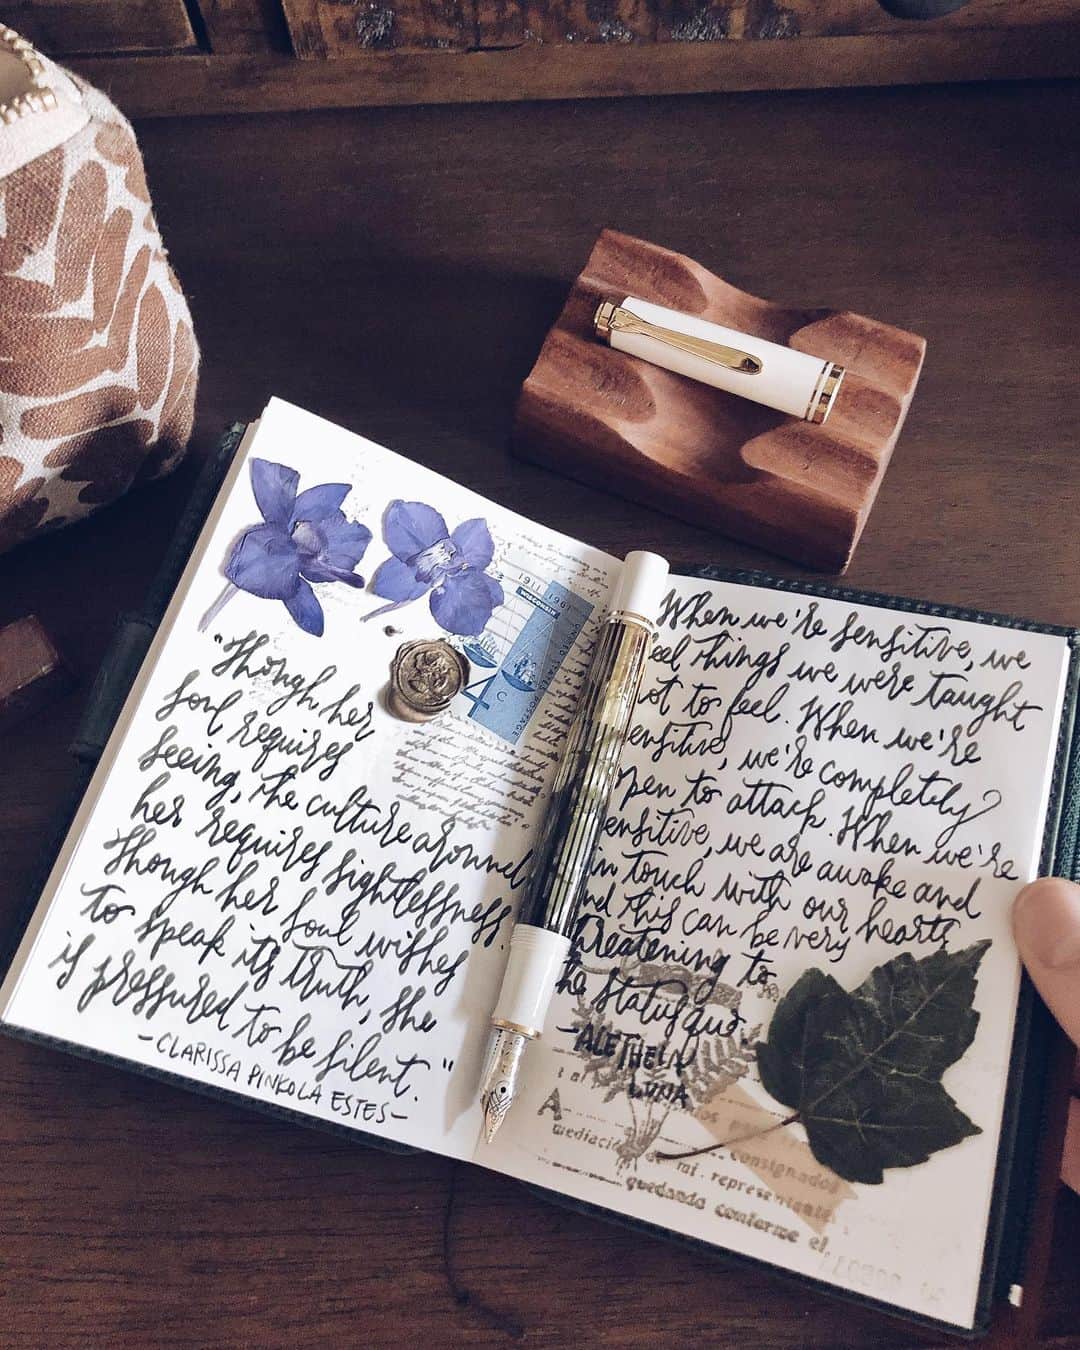 "Though her
soul requires
seeing, the culture around
her requires sightlessness.
Though her soul wishes
to speak its truth, she
is pressured to be silent."
-CLARISSA PINKOLA ESTES-
1911 1961
WISCONSIN
UNITED STATES
4 C
POSTAGE
When we're sensitive, we
feel things we were taught
not to feel. When we're
sensitive, we're completely
open to attack. When we're
sensitive, we are awake and
in touch with our hearts
and this can be very
threatening to
the status quo.
-ALETHEIA
LUNA
A
mediació de mi representante
consignados
quedando conforme el